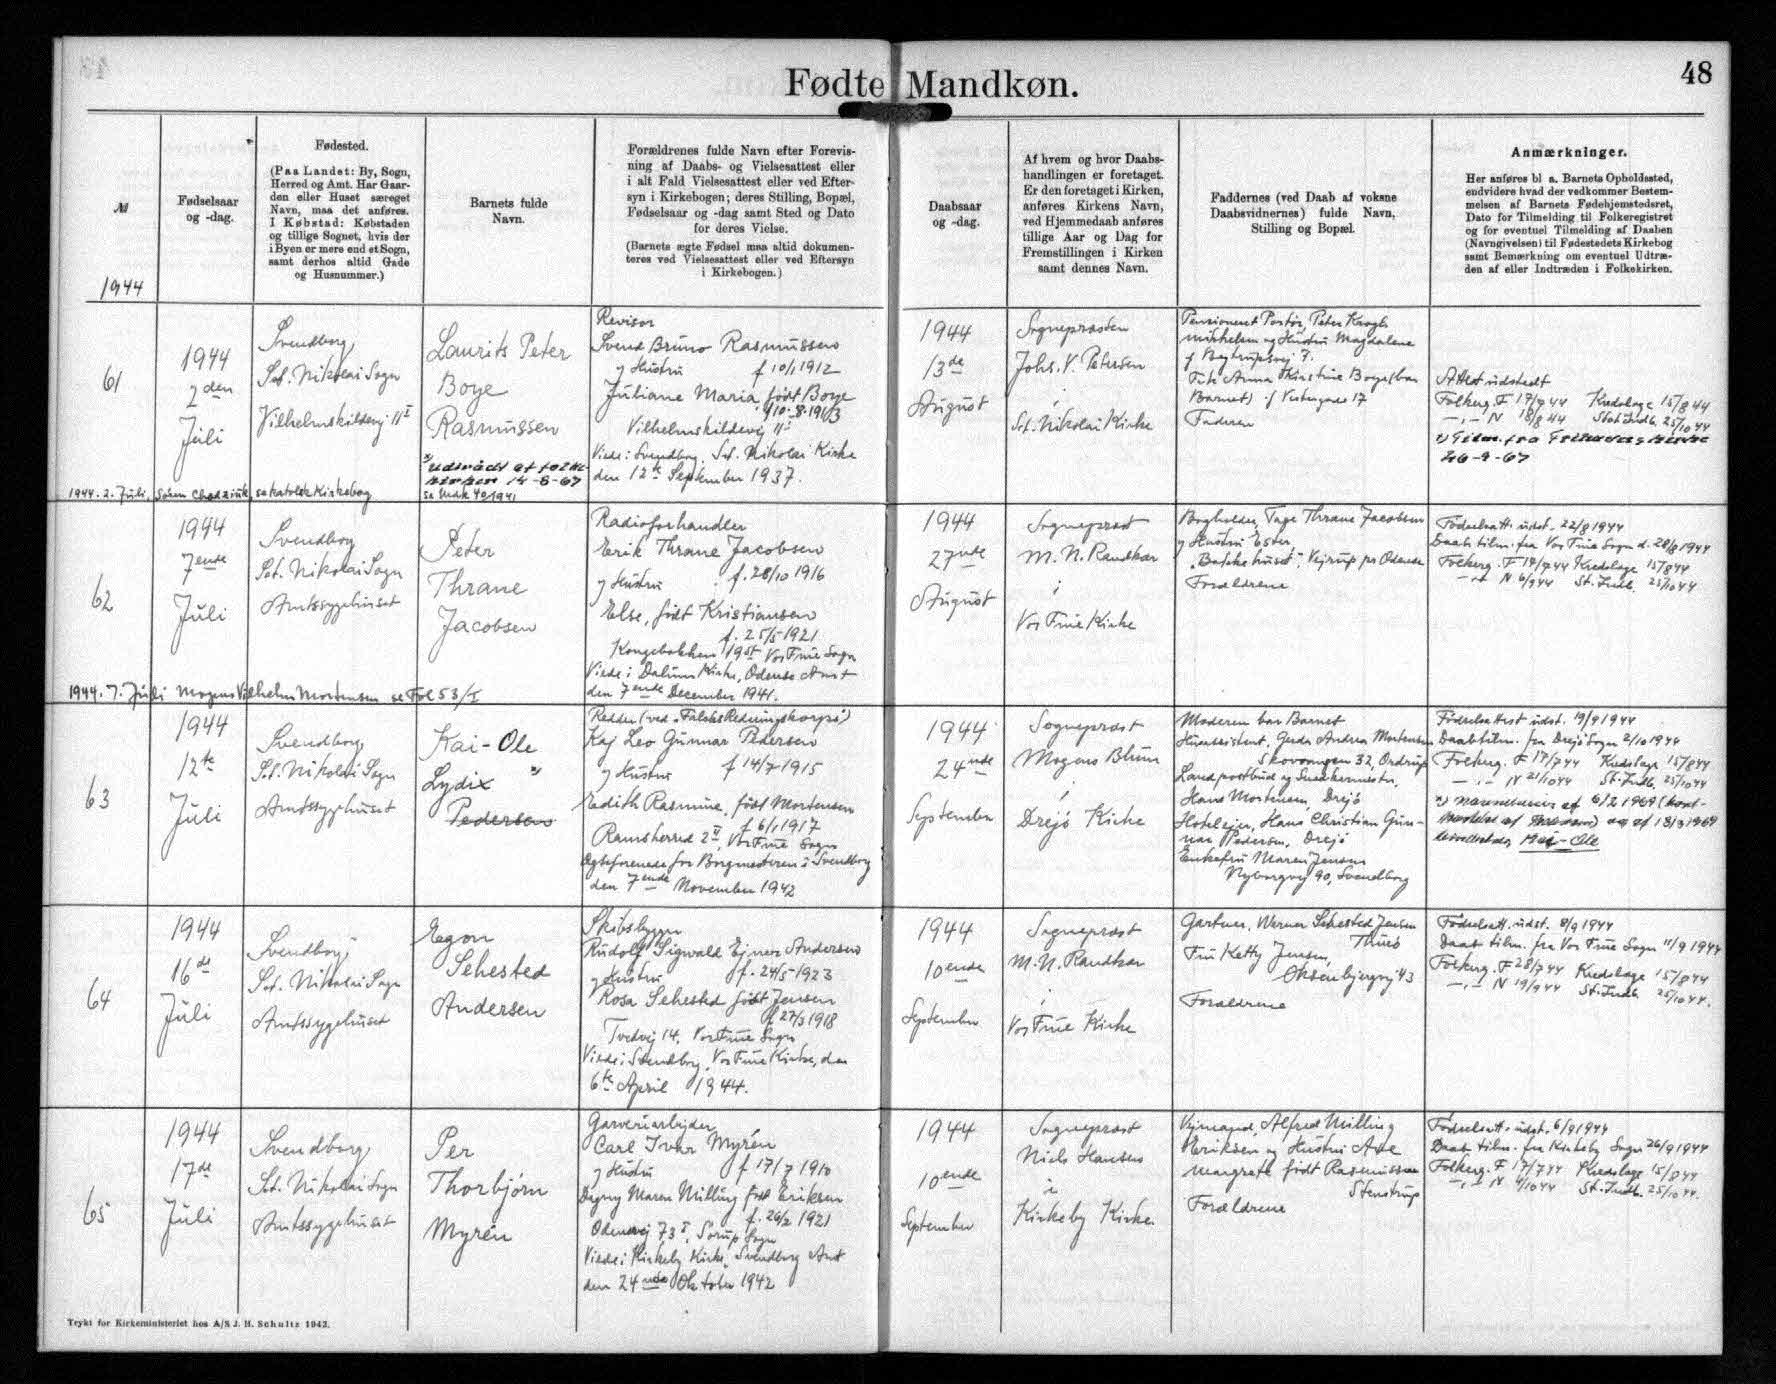 Fødte Mandkøn.
48
№
1944
Fødselsaar
og -dag.
Fødested.
(Paa Landet: By, Sogn,
Herred og Amt. Har Gaar-
den eller Huset særeget
Navn, maa det anføres.
I Købstad: Købstaden
og tillige Sognet, hvis der
i Byen er mere end et Sogn,
samt derhos altid Gade
og Husnummer.)
Barnets fulde
Navn.
Forældrenes fulde Navn efter Forevis-
ning af Daabs- og Vielsesattest eller
i alt Fald Vielsesattest eller ved Efter-
syn i Kirkebogen; deres Stilling, Bopæl,
Fødselsaar og -dag samt Sted og Dato
for deres Vielse.
(Barnets ægte Fødsel maa altid dokumen-
teres ved Vielsesattest eller ved Eftersyn
i Kirkebogen.)
Daabsaar
og -dag.
Af hvem og hvor Daabs-
handlingen er foretaget.
Er den foretaget i Kirken,
anføres Kirkens Navn,
ved Hjemmedaab anføres
tillige Aar og Dag for
Fremstillingen i Kirken
samt dennes Navn.
Faddernes (ved Daab af voksne
Daabsvidnernes) fulde Navn,
Stilling og Bopæl.
Anmærkninger.
Her anføres bl a. Barnets Opholdssted,
endvidere hvad der vedkommer Bestem-
melsen af Barnets Fødehjemstedsret,
Dato for Tilmelding til Folkeregistret
og for eventuel Tilmelding af Daaben
(Navngivelsen) til Fødestedets Kirkebog
samt Bemærkning om eventuel Udtræ-
den af eller Indtræden i Folkekirken.
61
1944
2den
Juli
Svendborg,
Sct. Nikolai Sogn
Vilhelmskildevej 11 I
Laurits Peter
Boye
Rasmussen
Udtrådt af folke-
kirken 14-8-67
Revisor
Svend Bruno Rasmussen
og Hustru f 10/1 1912
Juliane Maria, født Boye
Vilhelmskildevej 11 I
Viede i Svendborg, Sct. Nikolai Kirke
den 12te September 1937.
1944
13de
August
Sognepræsten
Johs. V. Petersen
i
Sct. Nikolai Kirke
Pensioneret Portør, Peter Krogh
Mikkelsen og Hustru Magdalene
Barnet)
Faderen
Attest udstedt
Folkerg. F 17/7 44 Kredslæge 15/8 44
N 18/8 44 Stat. Indb. 25/10 44
26-9-67
1944. 2. Juli, Søren Chodziuk, se katolsk Kirkebog
62
1944
7ende
Juli
Svendborg
Sct. Nikolai Sogn
Amtssygehuset
Peter
Thrane
Jacobsen
Radioforhandler
Erik Thrane Jacobsen
og Hustru f. 28/10 1916
Else, født Kristiansen
f. 25/5 1921
Kongebakken 19 st Vor Frue Sogn
Viede i Dalum Kirke, Odense Amt
den 7ende December 1941.
1944
27nde
August
Sognepræst
M. N. Randkær
i
Vor Frue Kirke
Bogholder, Tage Thrane Jacobsen
og Hustru Ester
Vejrup pr Odense
Forældrene
Fødselsatt. udst. 22/8 1944
Daab tilm. fra Vor Frue Sogn d. 28/8 1944
Folkerg. F 14/7 44 Kredslæge 15/8 44
N 6/9 44 St. Indb. 25/10 44
1944. 7. Juli Mogens Vilhelm Mortensen se Fol 53/I
63
1944
12te
Juli
Svendborg,
Sct. Nikolai Sogn
Amtssygehuset
Kai-Ole
Lydix
Pedersen
Redder (ved "Falcks Redningskorps")
Kaj Leo Gunnar Pedersen
og Hustru f 14/7 1915
Edith Rasmine, født Mortensen
f 6/1 1917
Ramsherred 2 II, Vor Frue Sogn
Ægteforenede for Borgmesteren i Svendborg
den 7ende November 1942
1944
24nde
September
Sognepræst
Mogens Blum
i
Drejø Kirke
Moderen bar Barnet
Husassistent, Gerda Andrea Mortensen
Skovvangen 32, Ordrup
Landpostbud og Snedkermester,
Hans Mortensen, Drejø
Hotelejer, Hans Christian Gun-
nar Pedersen, Drejø
Enkefru Maren Jensen
Nyborgvej 90, Svendborg
Fødselsattest udst. 19/9 1944
Daab tilm. fra Drejø Sogn 2/10 1944
Folkerg. F 17/7 44 Kredslæge 15/8 44
N 21/10 44 St. Indb. 25/10 44
Kai-Ole
64
1944
16de
Juli
Svendborg
Sct. Nikolai Sogn
Amtssygehuset
Egon
Sehested
Andersen
Skibsbygger
Rudolf Sigvald Ejner Andersen
og Hustru f. 24/5 1923
Rosa Sehested født Jensen
f 27/3 1918
Tvedvej 14, Vor Frue Sogn
Viede i Svendborg, Vor Frue Kirke, den
6te April 1944.
1944
10ende
September
Sognepræst
M. N. Randkær
i
Vor Frue Kirke
Gartner, Werner Sehested Jensen
Thurø
Fru Ketty Jensen,
Oksenbjergvej 43
Forældrene
Fødselsatt. udst. 8/9 1944
Daab tilm. fra Vor Frue Sogn 11/9 1944
Folkerg. F 28/7 44 Kredslæge 15/8 44
N 19/9 44 St. Indb. 25/10 44.
65
1944
17de
Juli
Svendborg,
Sct. Nikolai Sogn
Amtssygehuset
Per
Thorbjørn
Myrén
Garveriarbejder
Carl Ivar Myrén
og Hustru f 17/7 1910
Dagny Maren Milling født Eriksen
f. 26/2 1921
Odensevej 73 I, Sørup Sogn
Viede i Kirkeby Kirke, Svendborg Amt
den 24nde Oktober 1942
1944
10ende
September
Sognepræst
Niels Hansen
i
Kirkeby Kirke.
Vejmand, Alfred Milling
Eriksen og Hustru Ane
Margrete født Rasmussen
Stenstrup
Forældrene
Fødselsatt. udst. 6/9 1944
Daab tilm. fra Kirkeby Sogn 26/9 1944
Folkerg. F 17/7 44 Kredslæge 15/8 44
N 4/10 44 St. Indb. 25/10 44.
Trykt for Kirkeministeriet hos A/S J. H. Schultz 1943.